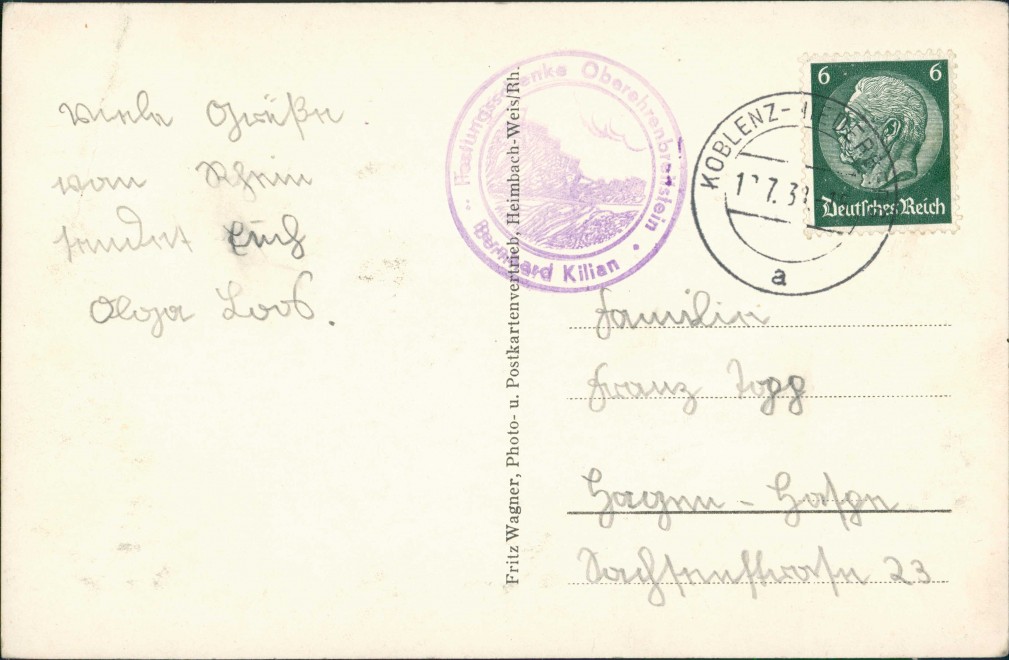 Viele Grüße
vom Rhein
sendet Euch
Olga Loos.
Festungsschenke Oberehrenbreitstein
Bernhard Kilian
Fritz Wagner, Photo- u. Postkartenvertrieb, Heimbach-Weis/Rh.
KOBLENZ-
7.3
a
6 6
Deutsches Reich
Familie
Franz Topp
Hagen - Haspe
Sachsenstrase 23